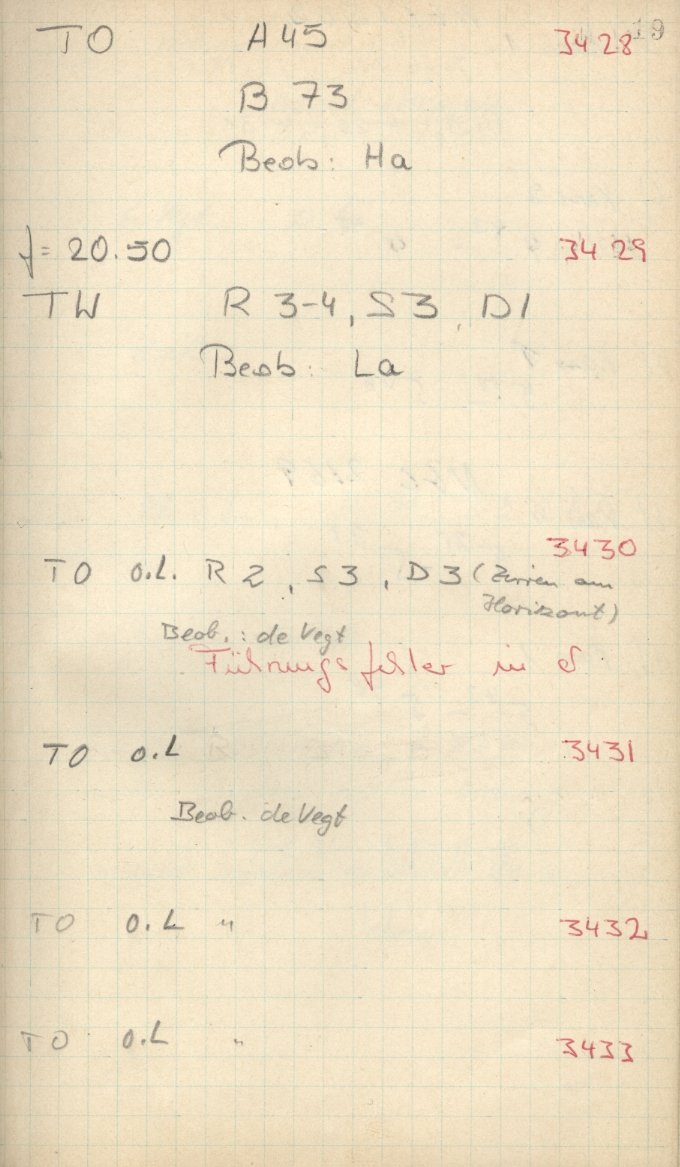 19
TO A45 3428
B 73
Beob: Ha
f = 20.50 3429
TW R 3-4, S3, D1
Beob: La
3430
TO o.L. R 2, S 3, D 3 (Zirren am
Horizont)
Beob.: de Vegt
Führungsfehler in δ
TO o.L 3431
Beob. de Vegt
TO o.L " 3432
TO o.L " 3433